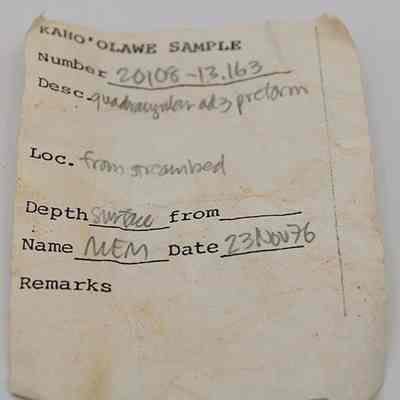 KAHO'OLAWE SAMPLE
Number 20108-13.163
Desc. quadrangular adz preform
Loc. from streambed
Depth surface from
Name MEM Date 23 Nov 76
Remarks